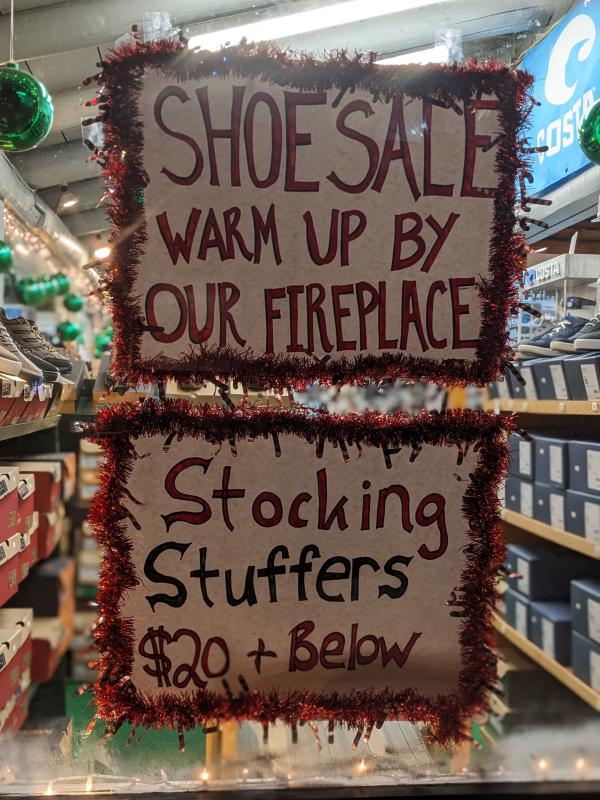 SHOE SALE
WARM UP BY
OUR FIREPLACE
Stocking
Stuffers
$20 + Below
COSTA
COSTA